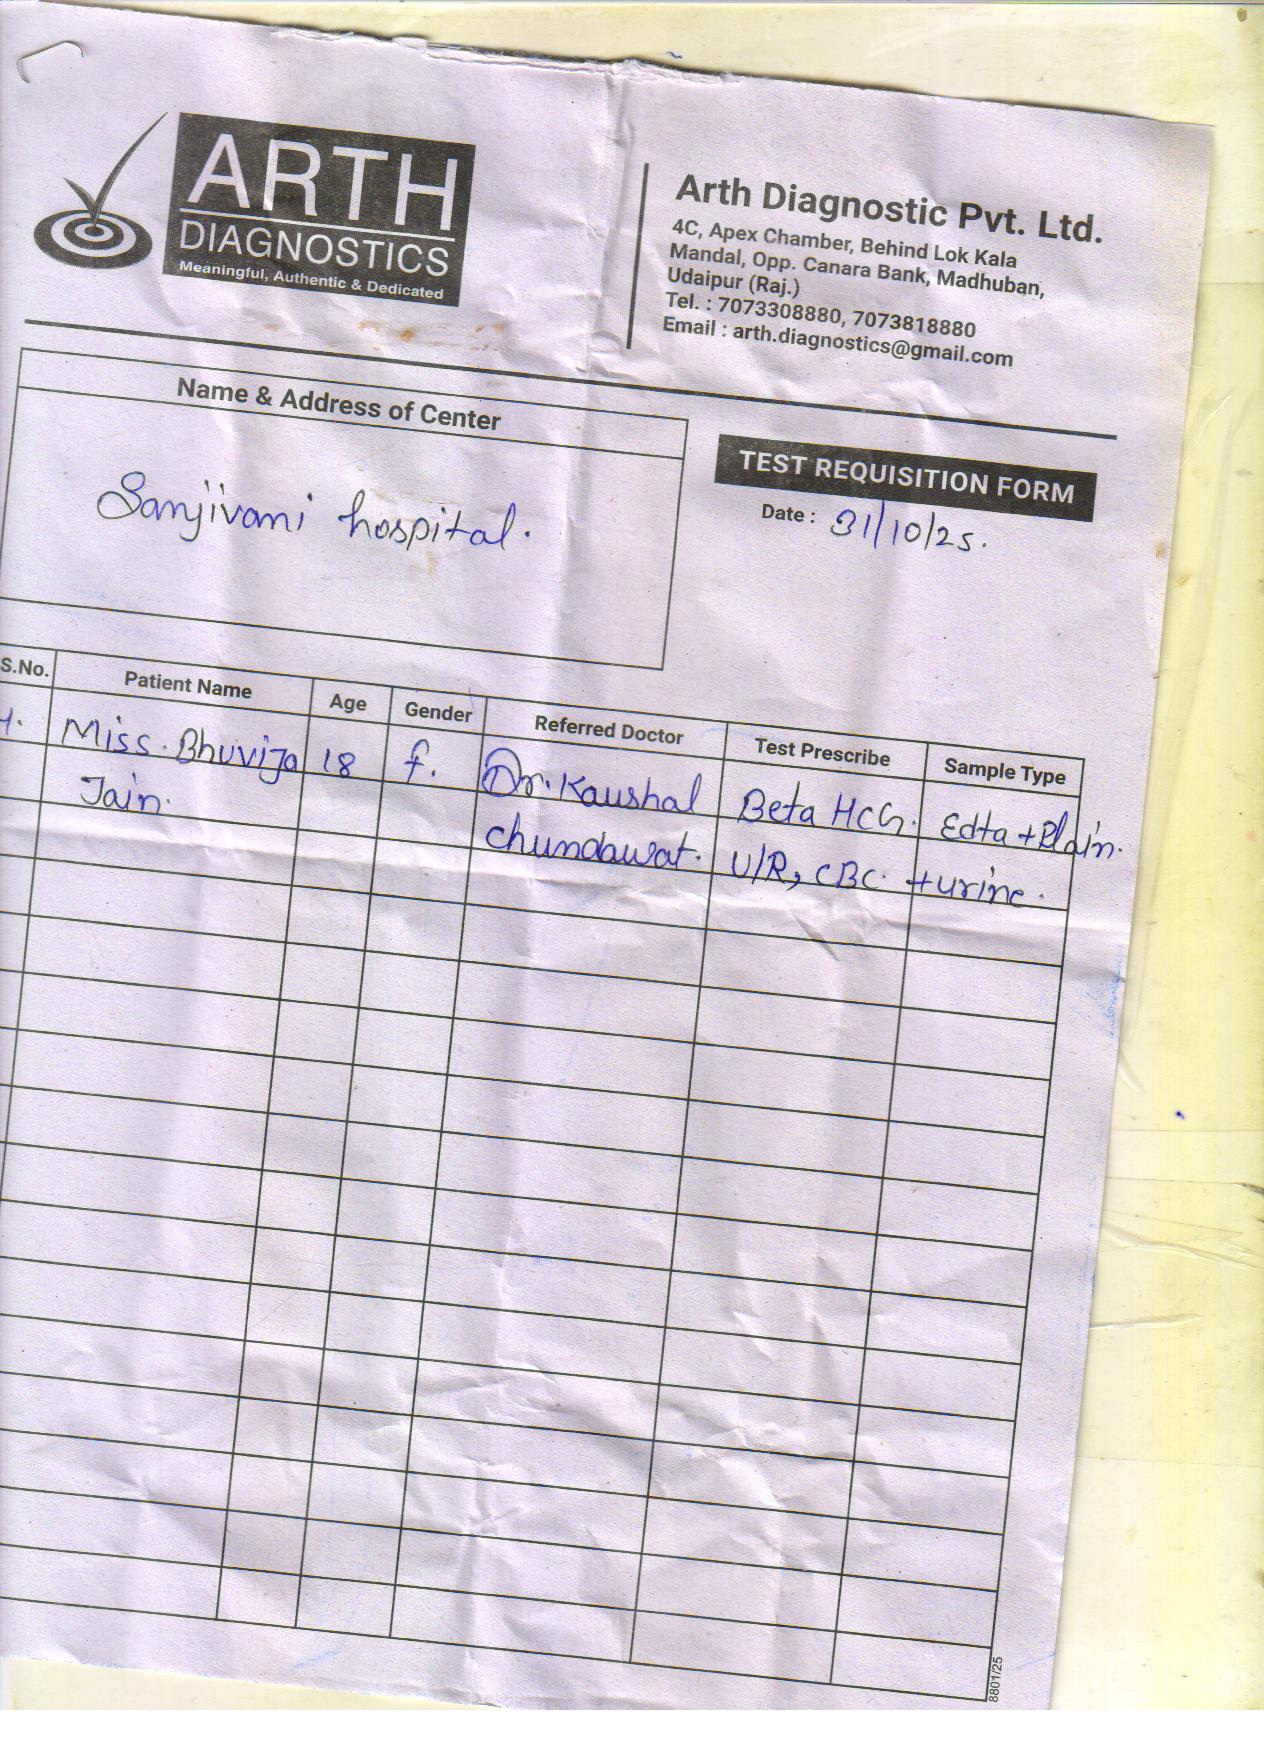 ARTH
DIAGNOSTICS
Meaningful, Authentic & Dedicated
Arth Diagnostic Pvt. Ltd.
4C, Apex Chamber, Behind Lok Kala
Mandal, Opp. Canara Bank, Madhuban,
Udaipur (Raj.)
Tel. : 7073308880, 7073818880
Email : arth.diagnostics@gmail.com
Name & Address of Center
Sanjivani hospital.
TEST REQUISITION FORM
Date : 31/10/25.
S.No. Patient Name Age Gender Referred Doctor Test Prescribe Sample Type
1. Miss. Bhuvija 18 f. Dr. Kaushal Beta HCG. Edta + Plain.
Jain. chundawat. U/R, CBC. + urine.
8801/25